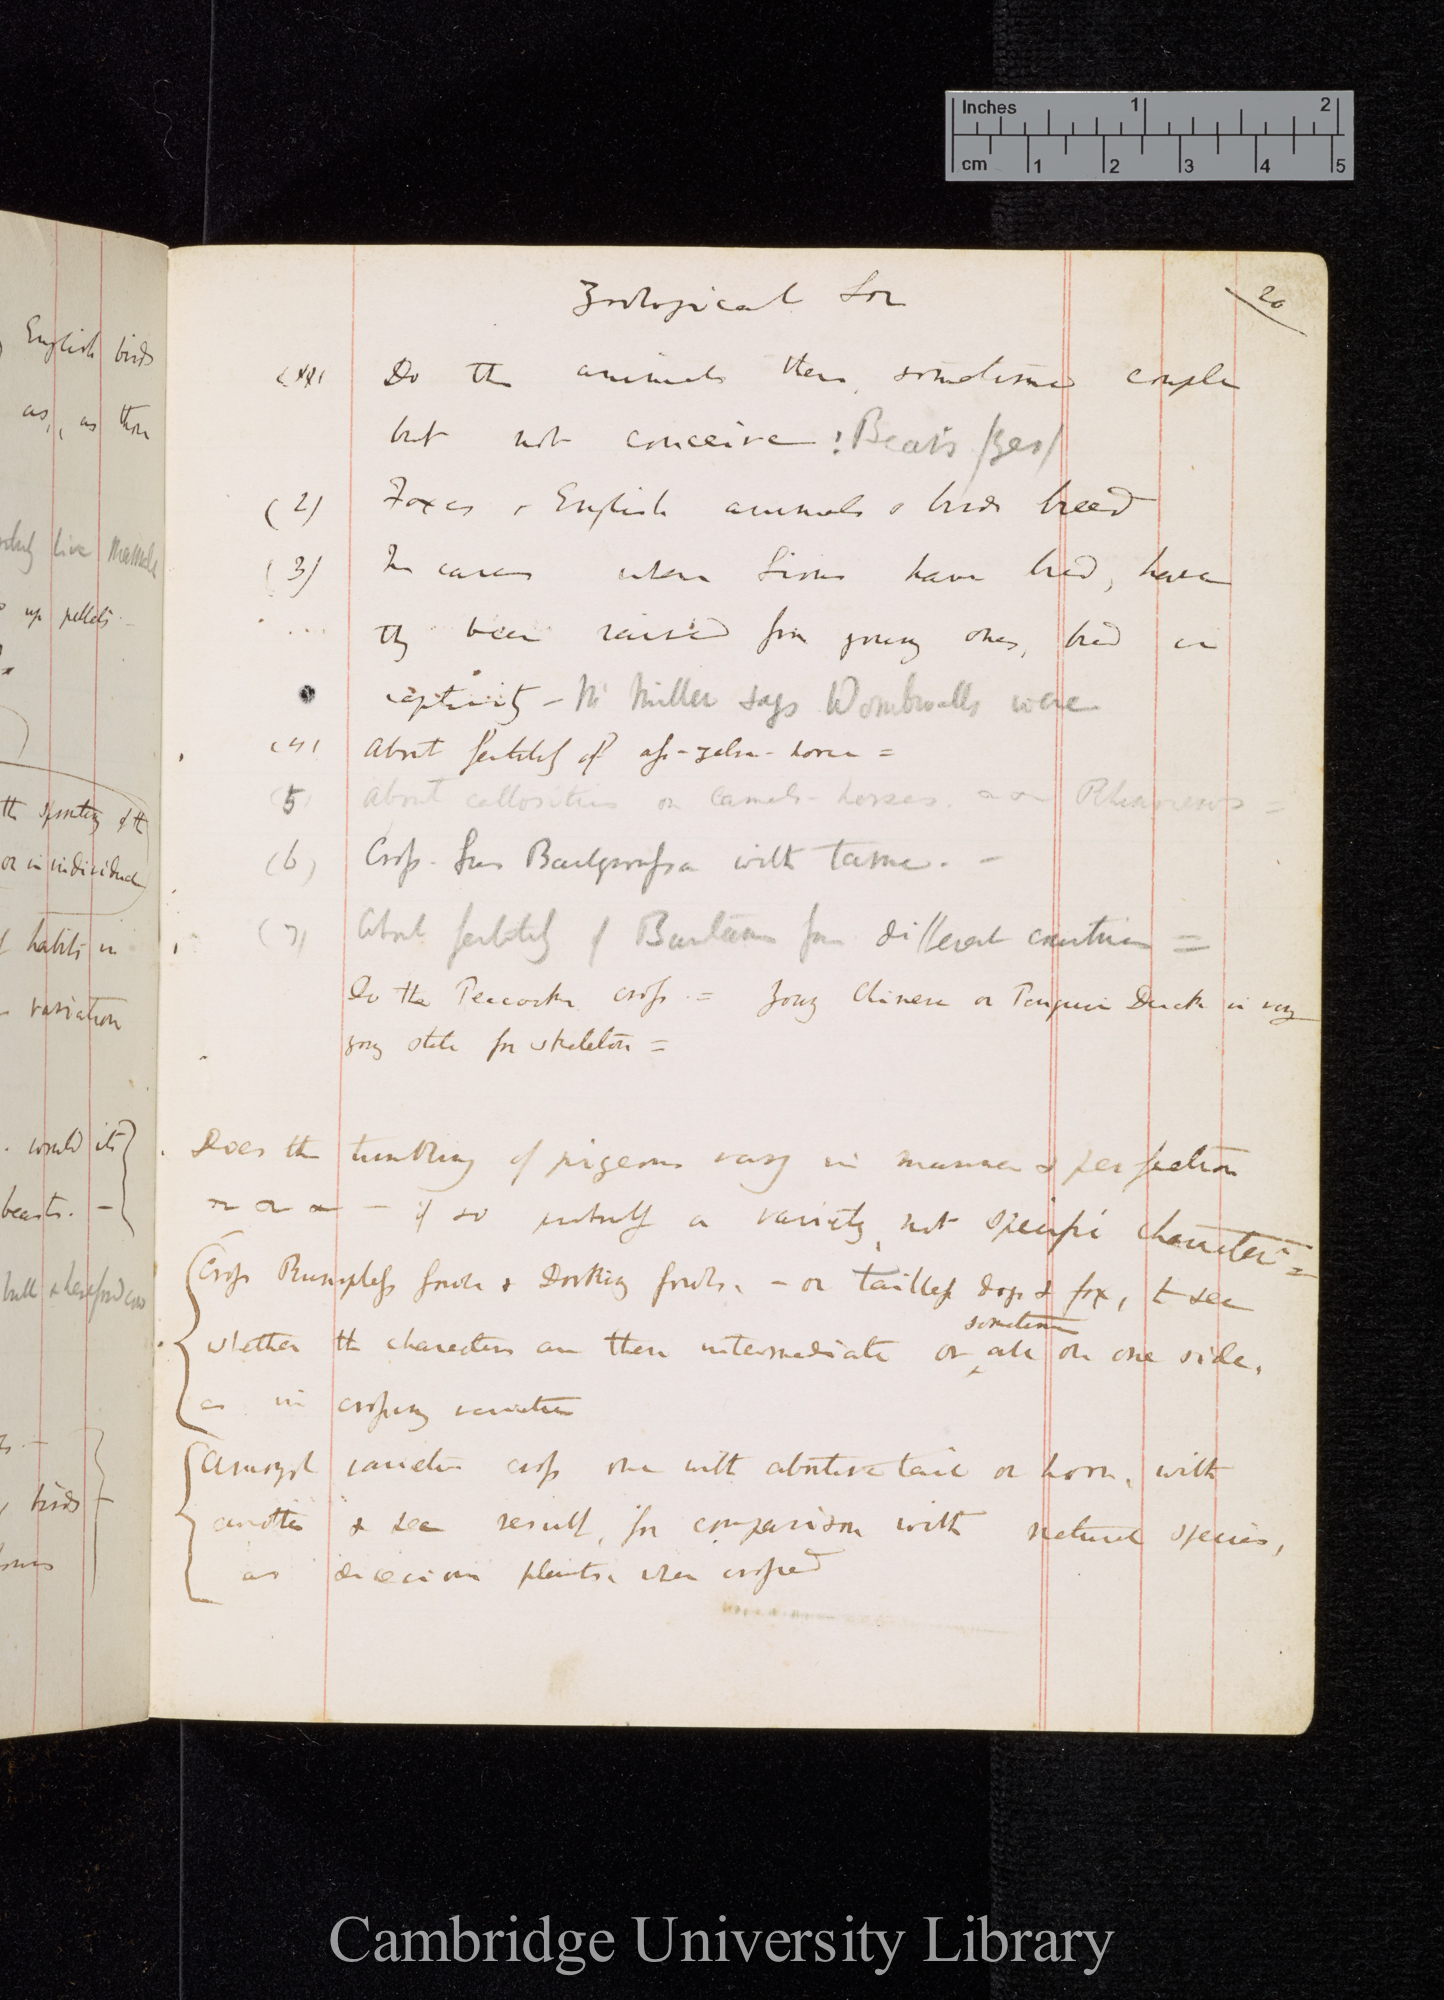 Inches 1 2
cm 1 2 3 4 5
Zoological Soc
20
(1) Do the animals there, sometimes couple
but not conceive? Bears /Yes/
(2) Foxes & English animals & birds breed
(3) In cases where Lions have bred, have
they been raised from young ones, bred in
captivity – Mr Miller says Wombwells were
(4) About fertility of ass-zebra-horse =
(5) About callosities on Camels – horses. Rhinoceros =
(6) Cross. Sus with tame. –
(7) About fertility of Bantams from different countries =
Do the Peacocks cross. = young Chinese or Penguin Duck in very
young state for skeleton =
Does the tumbling of pigeons vary in manner & perfection
– if so a variety, not specific character =
Cross Rumpless fowls & Dorking fowls. – or tailless dogs & fox, to see
sometimes
whether the characters are there intermediate or all on one side,
as in crossing varieties
Amongst varieties cross one with abortive tail or horn, with
another & see result, for comparison with natural species,
as diœcious plants, when crossed
English birds
as, as those
live
up pellets
the sporting of the
or in individual
habits in
variation
would its
beasts. –
bull & hereford cow
birds
Cambridge University Library